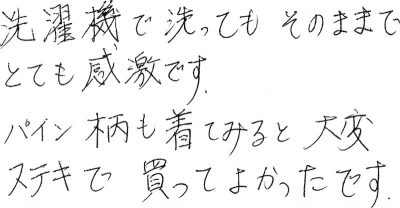 洗濯機で洗っても そのままで
とても感激です.
パイン柄も着てみると 大変
ステキで 買ってよかったです.